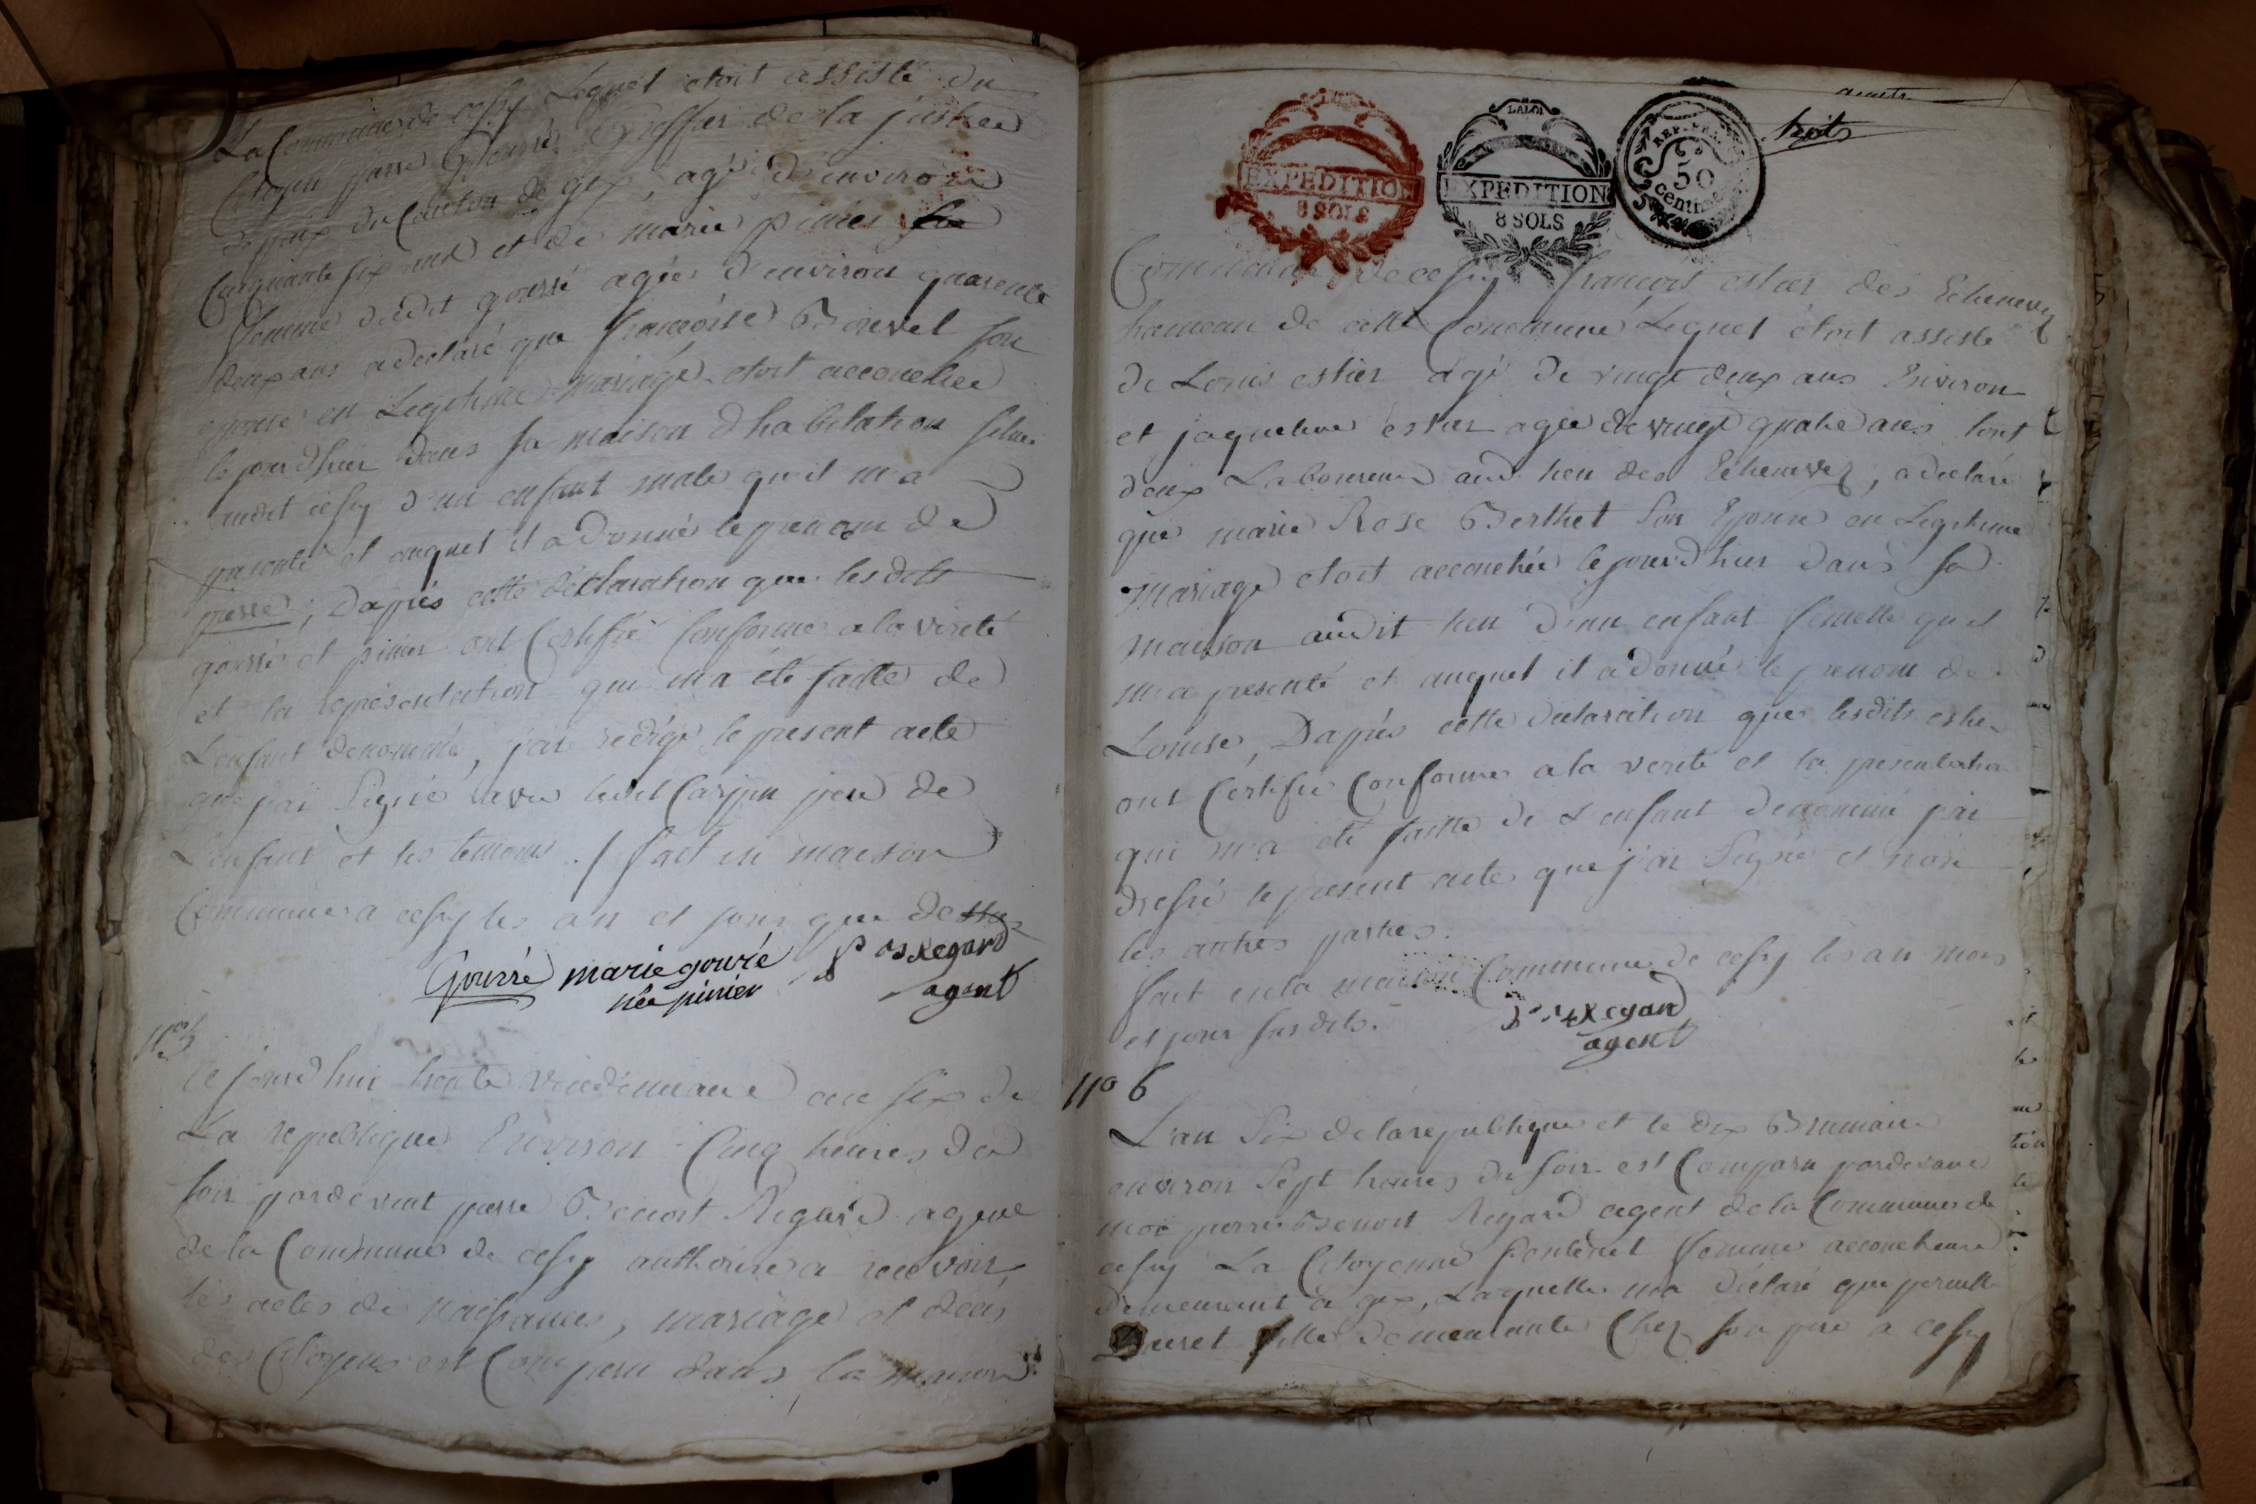 La Commune de cessy Lequel etoit assisté du
Citoyen pierre Gourré Greffier de la justice
de paix du Canton de gex, agé d'environ
Cinquante six ans et de marie pinier
femme dudit gourré agée d'environ quarente
deux ans a declaré que françoise Bouvet son
epouse en Legitime mariage etoit accouchée
le jourdhier dans sa maison d'habitation située
audit cessy d'un enfant male qu'il m'a
presenté et auquel il a donné le prenom de
pierre, Dapres cette déclaration que lesdits
gourré et pinier ont Certifié Conforme a la verité
et la representation qui m'a été faitte de
L'enfant denommé, j'ai redigé le present acte
que j'ai Signé avec ledit pere de
L'enfant et les temoins. / fait en maison
Commune a cessy les an et jour que dessus
Gourré marie gouré née pinier Regard agent
n° 5
Cejourdhui trente vendémiaire an six de
La republique Environ Cinq heures du
soir pardevant pierre Benoit Regard agent
de la Commune de cessy authorisé a recevoir
les actes de naissances, mariage et deces
des Citoyens est Comparu dans la maison
huit
LA LOI
EXPEDITION
8 SOLS
LA LOI
EXPEDITION
8 SOLS
REP. FRA.
50
Centimes
Commune de cessy françois estier des Echenevez
hameau de cette Commune Lequel étoit assisté
de Louis estier agé de vingt deux ans Environ
et jaqueline estier agée de vingt quatre ans tout
deux Laboureurs aud. lieu des Echenevez, a declaré
que marie Rose Berthet son Epouse en Legitime
mariage etoit accouchée le jourdhier dans sa
maison audit lieu d'un enfant femelle qu'il
m'a presenté et auquel il a donné le prenom de
Louise, Dapres cette declaration que lesdits estier
ont Certifié Conforme a la verité et la presentation
qui m'a été faitte de L'enfant denommé j'ai
dressé le present acte que j'ai Signé et non
les autres parties.
fait en la maison Commune de cessy les an mois
et jour susdits. Regard
agent
n° 6
L'an Six de la republique et le dix Brumaire
environ Sept heures du soir est Comparu pardevant
moi pierre Benoit Regard agent de la Commune de
cessy La Citoyenne femme accoucheuse
demeurant a gex, Laquelle m'a déclaré que
fille demeurante Chez son pere a cessy